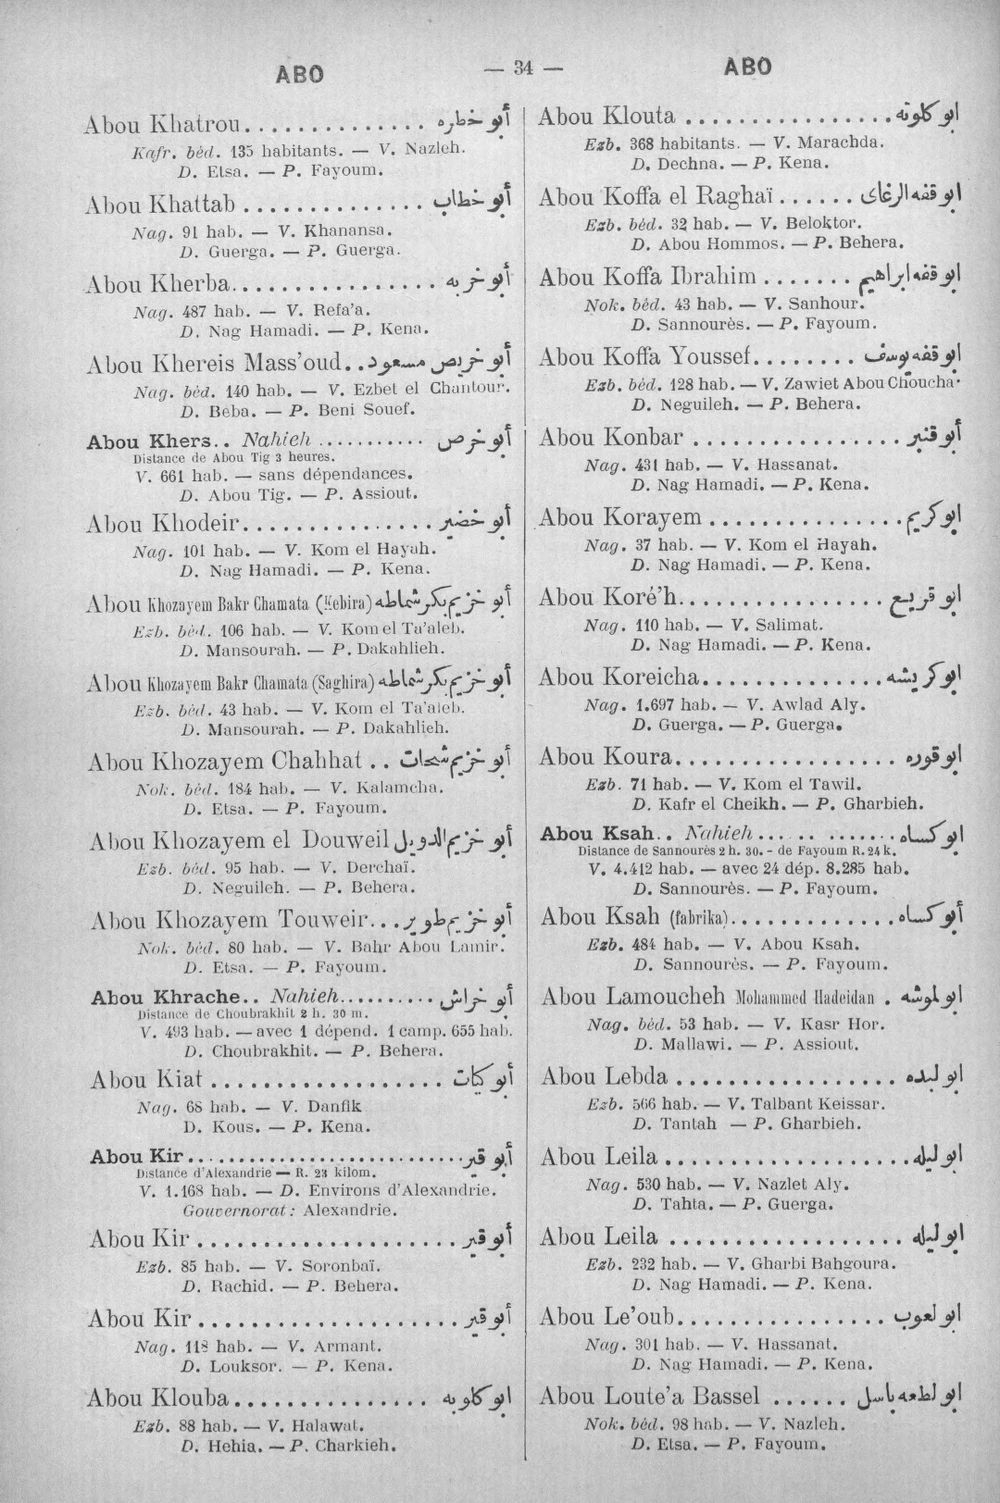 ABO — 34 — ABO
Abou Khatrou............... أبو خطره
Kafr. béd. 135 habitants. — V. Nazleh.
D. Etsa. — P. Fayoum.
Abou Khattab ............... أبو خطاب
Nag. 91 hab. — V. Khanansa.
D. Guerga. — P. Guerga.
Abou Kherba................. أبو خربه
Nag. 487 hab. — V. Refa'a.
D. Nag Hamadi. — P. Kena.
Abou Khereis Mass'oud.. أبو خريص مسعود
Nag. béd. 140 hab. — V. Ezbet el Chantour.
D. Beba. — P. Beni Souef.
Abou Khers.. Nahieh ........... أبو خرص
Distance de Abou Tig 3 heures.
V. 661 hab. — sans dépendances.
D. Abou Tig. — P. Assiout.
Abou Khodeir................ أبو خضير
Nag. 101 hab. — V. Kom el Hayah.
D. Nag Hamadi. — P. Kena.
Abou Khozayem Bakr Chamata (Kebira) أبو خزيم بكر شماطه
Ezb. béd. 106 hab. — V. Kom el Ta'aleb.
D. Mansourah. — P. Dakahlieh.
Abou Khozayem Bakr Chamata (Saghira) أبو خزيم بكر شماطه
Ezb. béd. 43 hab. — V. Kom el Ta'aleb.
D. Mansourah. — P. Dakahlieh.
Abou Khozayem Chahhat .. أبو خزيم شحات
Nok. béd. 184 hab. — V. Kalamcha.
D. Etsa. — P. Fayoum.
Abou Khozayem el Douweil أبو خزيم الدويل
Ezb. béd. 95 hab. — V. Derchaï.
D. Neguileh. — P. Behera.
Abou Khozayem Touweir... أبو خزيم طوير
Nok. béd. 80 hab. — V. Bahr Abou Lamir.
D. Etsa. — P. Fayoum.
Abou Khrache.. Nahieh.......... أبو خراش
Distance de Choubrakhit 2 h. 30 m.
V. 493 hab. — avec 1 dépend. 1 camp. 655 hab.
D. Choubrakhit. — P. Behera.
Abou Kiat ................... أبو كيات
Nag. 68 hab. — V. Danfik
D. Kous. — P. Kena.
Abou Kir........................... أبو قير
Distance d'Alexandrie — R. 23 kilom.
V. 1.168 hab. — D. Environs d'Alexandrie.
Gouvernorat : Alexandrie.
Abou Kir .................... أبو قير
Ezb. 85 hab. — V. Soronbaï.
D. Rachid. — P. Behera.
Abou Kir .................... أبو قير
Nag. 118 hab. — V. Armant.
D. Louksor. — P. Kena.
Abou Klouba................ ابو كلوبه
Ezb. 88 hab. — V. Halawat.
D. Hehia. — P. Charkieh.
Abou Klouta ................. ابو كلوته
Ezb. 368 habitants. — V. Marachda.
D. Dechna. — P. Kena.
Abou Koffa el Raghaï ...... ابو قفه الرغاى
Ezb. béd. 32 hab. — V. Beloktor.
D. Abou Hommos. — P. Behera.
Abou Koffa Ibrahim ....... ابو قفه ابراهيم
Nok. béd. 43 hab. — V. Sanhour.
D. Sannourès. — P. Fayoum.
Abou Koffa Youssef........ ابو قفه يوسف
Ezb. béd. 128 hab. — V. Zawiet Abou Choucha.
D. Neguileh. — P. Behera.
Abou Konbar ................ أبو قنبر
Nag. 431 hab. — V. Hassanat.
D. Nag Hamadi. — P. Kena.
Abou Korayem ............... ابو كريم
Nag. 37 hab. — V. Kom el Hayah.
D. Nag Hamadi. — P. Kena.
Abou Koré'h................. ابو قريع
Nag. 110 hab. — V. Salimat.
D. Nag Hamadi. — P. Kena.
Abou Koreicha............... ابو كريشه
Nag. 1.697 hab. — V. Awlad Aly.
D. Guerga. — P. Guerga.
Abou Koura.................. ابو قوره
Ezb. 71 hab. — V. Kom el Tawil.
D. Kafr el Cheikh. — P. Gharbieh.
Abou Ksah.. Nahieh ............ ابو كساه
Distance de Sannourès 2 h. 30. - de Fayoum R. 24 k.
V. 4.412 hab. — avec 24 dép. 8.285 hab.
D. Sannourès. — P. Fayoum.
Abou Ksah (fabrika)............ أبو كساه
Ezb. 484 hab. — V. Abou Ksah.
D. Sannourès. — P. Fayoum.
Abou Lamoucheh Mohammed Hadeidan . ابو لموشه
Nag. béd. 53 hab. — V. Kasr Hor.
D. Mallawi. — P. Assiout.
Abou Lebda ................. ابو لبده
Ezb. 566 hab. — V. Talbant Keissar.
D. Tantah — P. Gharbieh.
Abou Leila .................. ابو ليله
Nag. 530 hab. — V. Nazlet Aly.
D. Tahta. — P. Guerga.
Abou Leila .................. ابو ليله
Ezb. 232 hab. — V. Gharbi Bahgoura.
D. Nag Hamadi. — P. Kena.
Abou Le'oub................. ابو لعوب
Nag. 301 hab. — V. Hassanat.
D. Nag Hamadi. — P. Kena.
Abou Loute'a Bassel ...... ابو لطعه باسل
Nok. béd. 98 hab. — V. Nazleh.
D. Etsa. — P. Fayoum.